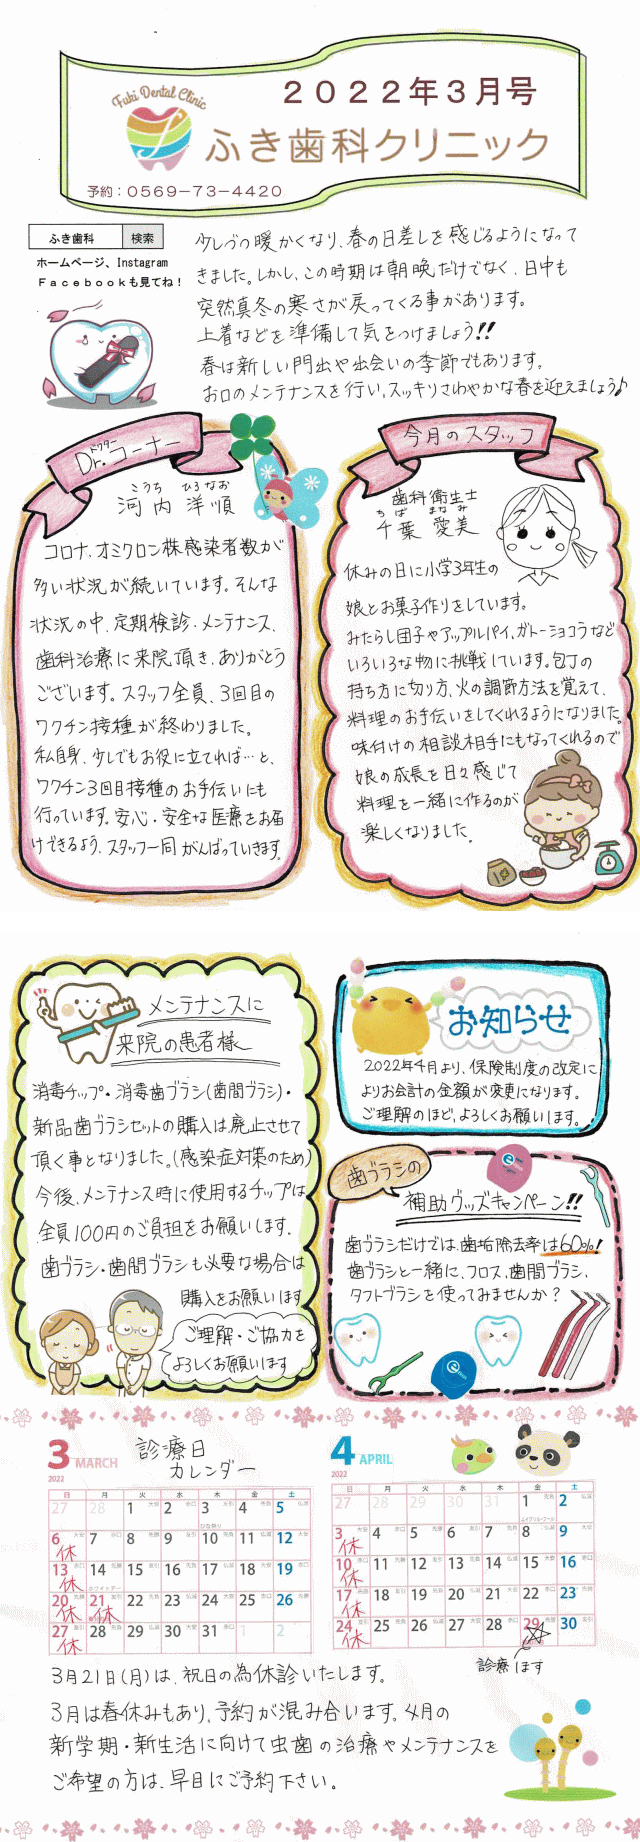 Fuki Dental Clinic
2022年3月号
ふき歯科クリニック
予約：0569-73-4420
ふき歯科 検索
ホームページ、Instagram
Facebookも見てね！
少しづつ暖かくなり、春の日差しを感じるようになって
きました。しかし、この時期は朝晩だけでなく、日中も
突然真冬の寒さが戻ってくる事があります。
上着などを準備して気をつけましょう!!
春は新しい門出や出会いの季節でもあります。
お口のメンテナンスを行い、スッキリさわやかな春を迎えましょう♪
Dr.コーナー
ドクター
こうち ひろなお
河内 洋順
コロナ、オミクロン株感染者数が
多い状況が続いています。そんな
状況の中、定期検診・メンテナンス、
歯科治療に来院頂き、ありがとう
ございます。スタッフ全員、3回目の
ワクチン接種が終わりました。
私自身、少しでもお役に立てれば…と、
ワクチン3回目接種のお手伝いにも
行っています。安心・安全な医療をお届
けできるよう、スタッフ一同がんばっていきます。
今月のスタッフ
歯科衛生士
ちば まなみ
千葉 愛美
休みの日に小学3年生の
娘とお菓子作りをしています。
みたらし団子やアップルパイ、ガトーショコラなど
いろいろな物に挑戦しています。包丁の
持ち方に切り方、火の調節方法を覚えて、
料理のお手伝いをしてくれるようになりました。
味付けの相談相手にもなってくれるので
娘の成長を日々感じて
料理を一緒に作るのが
楽しくなりました。
メンテナンスに
来院の患者様へ
消毒チップ・消毒歯ブラシ(歯間ブラシ)・
新品歯ブラシセットの購入は廃止させて
頂く事となりました。(感染症対策のため)
今後、メンテナンス時に使用するチップは
全員100円のご負担をお願いします。
歯ブラシ・歯間ブラシも必要な場合は
購入をお願います
ご理解・ご協力を
よろしくお願います
お知らせ
2022年4月より、保険制度の改定に
よりお会計の金額が変更になります。
ご理解のほど、よろしくお願います。
歯ブラシの
補助グッズキャンペーン!!
歯ブラシだけでは、歯垢除去率は60%!
歯ブラシと一緒に、フロス、歯間ブラシ、
タフトブラシを使ってみませんか？
3 MARCH
2022
診療日
カレンダー
日 月 火 水 木 金 土
27 28 1 2 3 4 5
6 7 8 9 10 11 12
休
13 14 15 16 17 18 19
休
20 21 22 23 24 25 26
休 休
27 28 29 30 31 1 2
休
4 APRIL
2022
日 月 火 水 木 金 土
27 28 29 30 31 1 2
3 4 5 6 7 8 9
休
10 11 12 13 14 15 16
休
17 18 19 20 21 22 23
休
24 25 26 27 28 29 30
休
診療します
3月21日(月)は、祝日の為休診いたします。
3月は春休みもあり、予約が混み合います。4月の
新学期・新生活に向けて虫歯の治療やメンテナンスを
ご希望の方は、早目にご予約下さい。